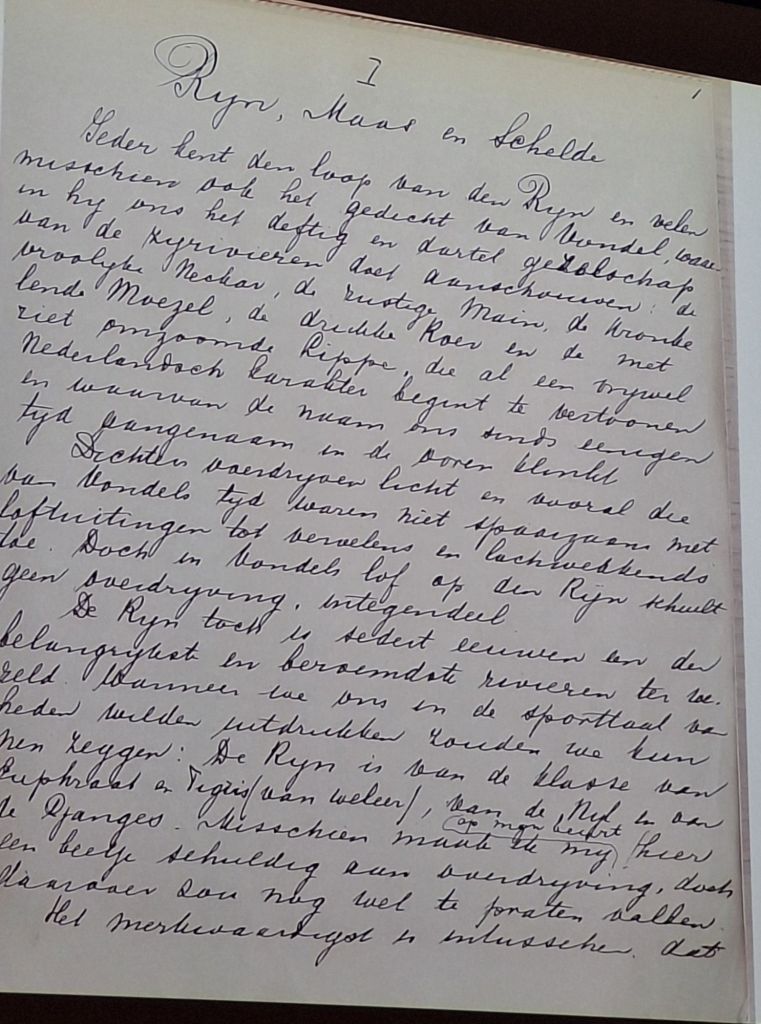 I
1
Ryn, Maas en Schelde
Ieder kent den loop van den Ryn en velen
misschien ook het gedicht van Vondel, waar-
in hy ons het deftig en dartel gezelschap
van de zyrivieren doet aanschouwen: de
vroolyke Neckar, de rustige Main, de kronke
lende Moezel, de drukke Roer en de met
riet omzoomde Lippe, die al een vrywel
Nederlandsch karakter begint te vertoonen
en waarvan de naam ons sinds eenigen
tyd aangenaam in de ooren klinkt
Dichters overdryven licht en vooral die
van Vondels tyd waren niet spaarzaam met
loftuitingen tot vervelens en lachwekkends
toe. Doch in Vondels lof op den Ryn schuilt
geen overdryving, integendeel
De Ryn toch is sedert eeuwen een der
belangrykst en beroemdste rivieren ter we-
reld. Wanneer we ons in de sporttaal van
heden wilden uitdrukken zouden we kun
nen zeggen: De Ryn is van de klasse van
Euphraat en Tigris (van weleer), van de Nyl en van
de Ganges. Misschien maak ik my op myn beurt hier
een beetje schuldig aan overdryving, doch
daarover zou nog wel te praten vallen.
Het merkwaardigst is intusschen, dat